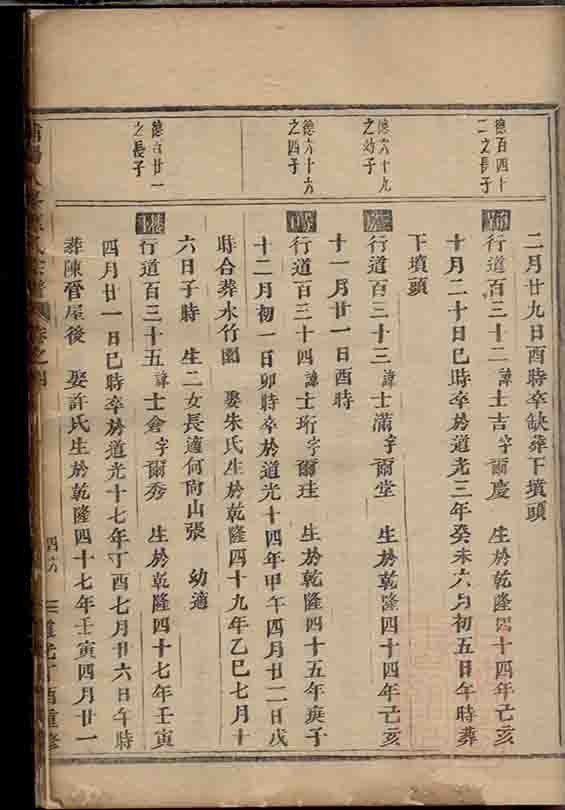 二月廿九日酉時卒缺葬下墳頭
德百四十
二之長子
行道百三十二諱士吉字爾慶 生於乾隆四十四年己亥
十月二十日巳時卒於道光三年癸未六月初五日午時葬
下墳頭
德六十九
之幼子
行道百三十三諱士滿字爾堂 生於乾隆四十四年己亥
十一月廿一日酉時
德六十六
之四子
行道百三十四諱士珩字爾珪 生於乾隆四十五年庚子
十二月初一日卯時卒於道光十四年甲午四月廿二日戌
時合葬水竹園 娶朱氏生於乾隆四十九年乙巳七月十
六日子時 生二女長適何尚山張 幼適
德百廿一
之長子
行道百三十五諱士倉字爾秀 生於乾隆四十七年壬寅
四月廿一日巳時卒於道光十七年丁酉七月廿六日午時
葬陳管屋後 娶許氏生於乾隆四十七年壬寅四月廿一
卷之四
四六
道光丁酉重修